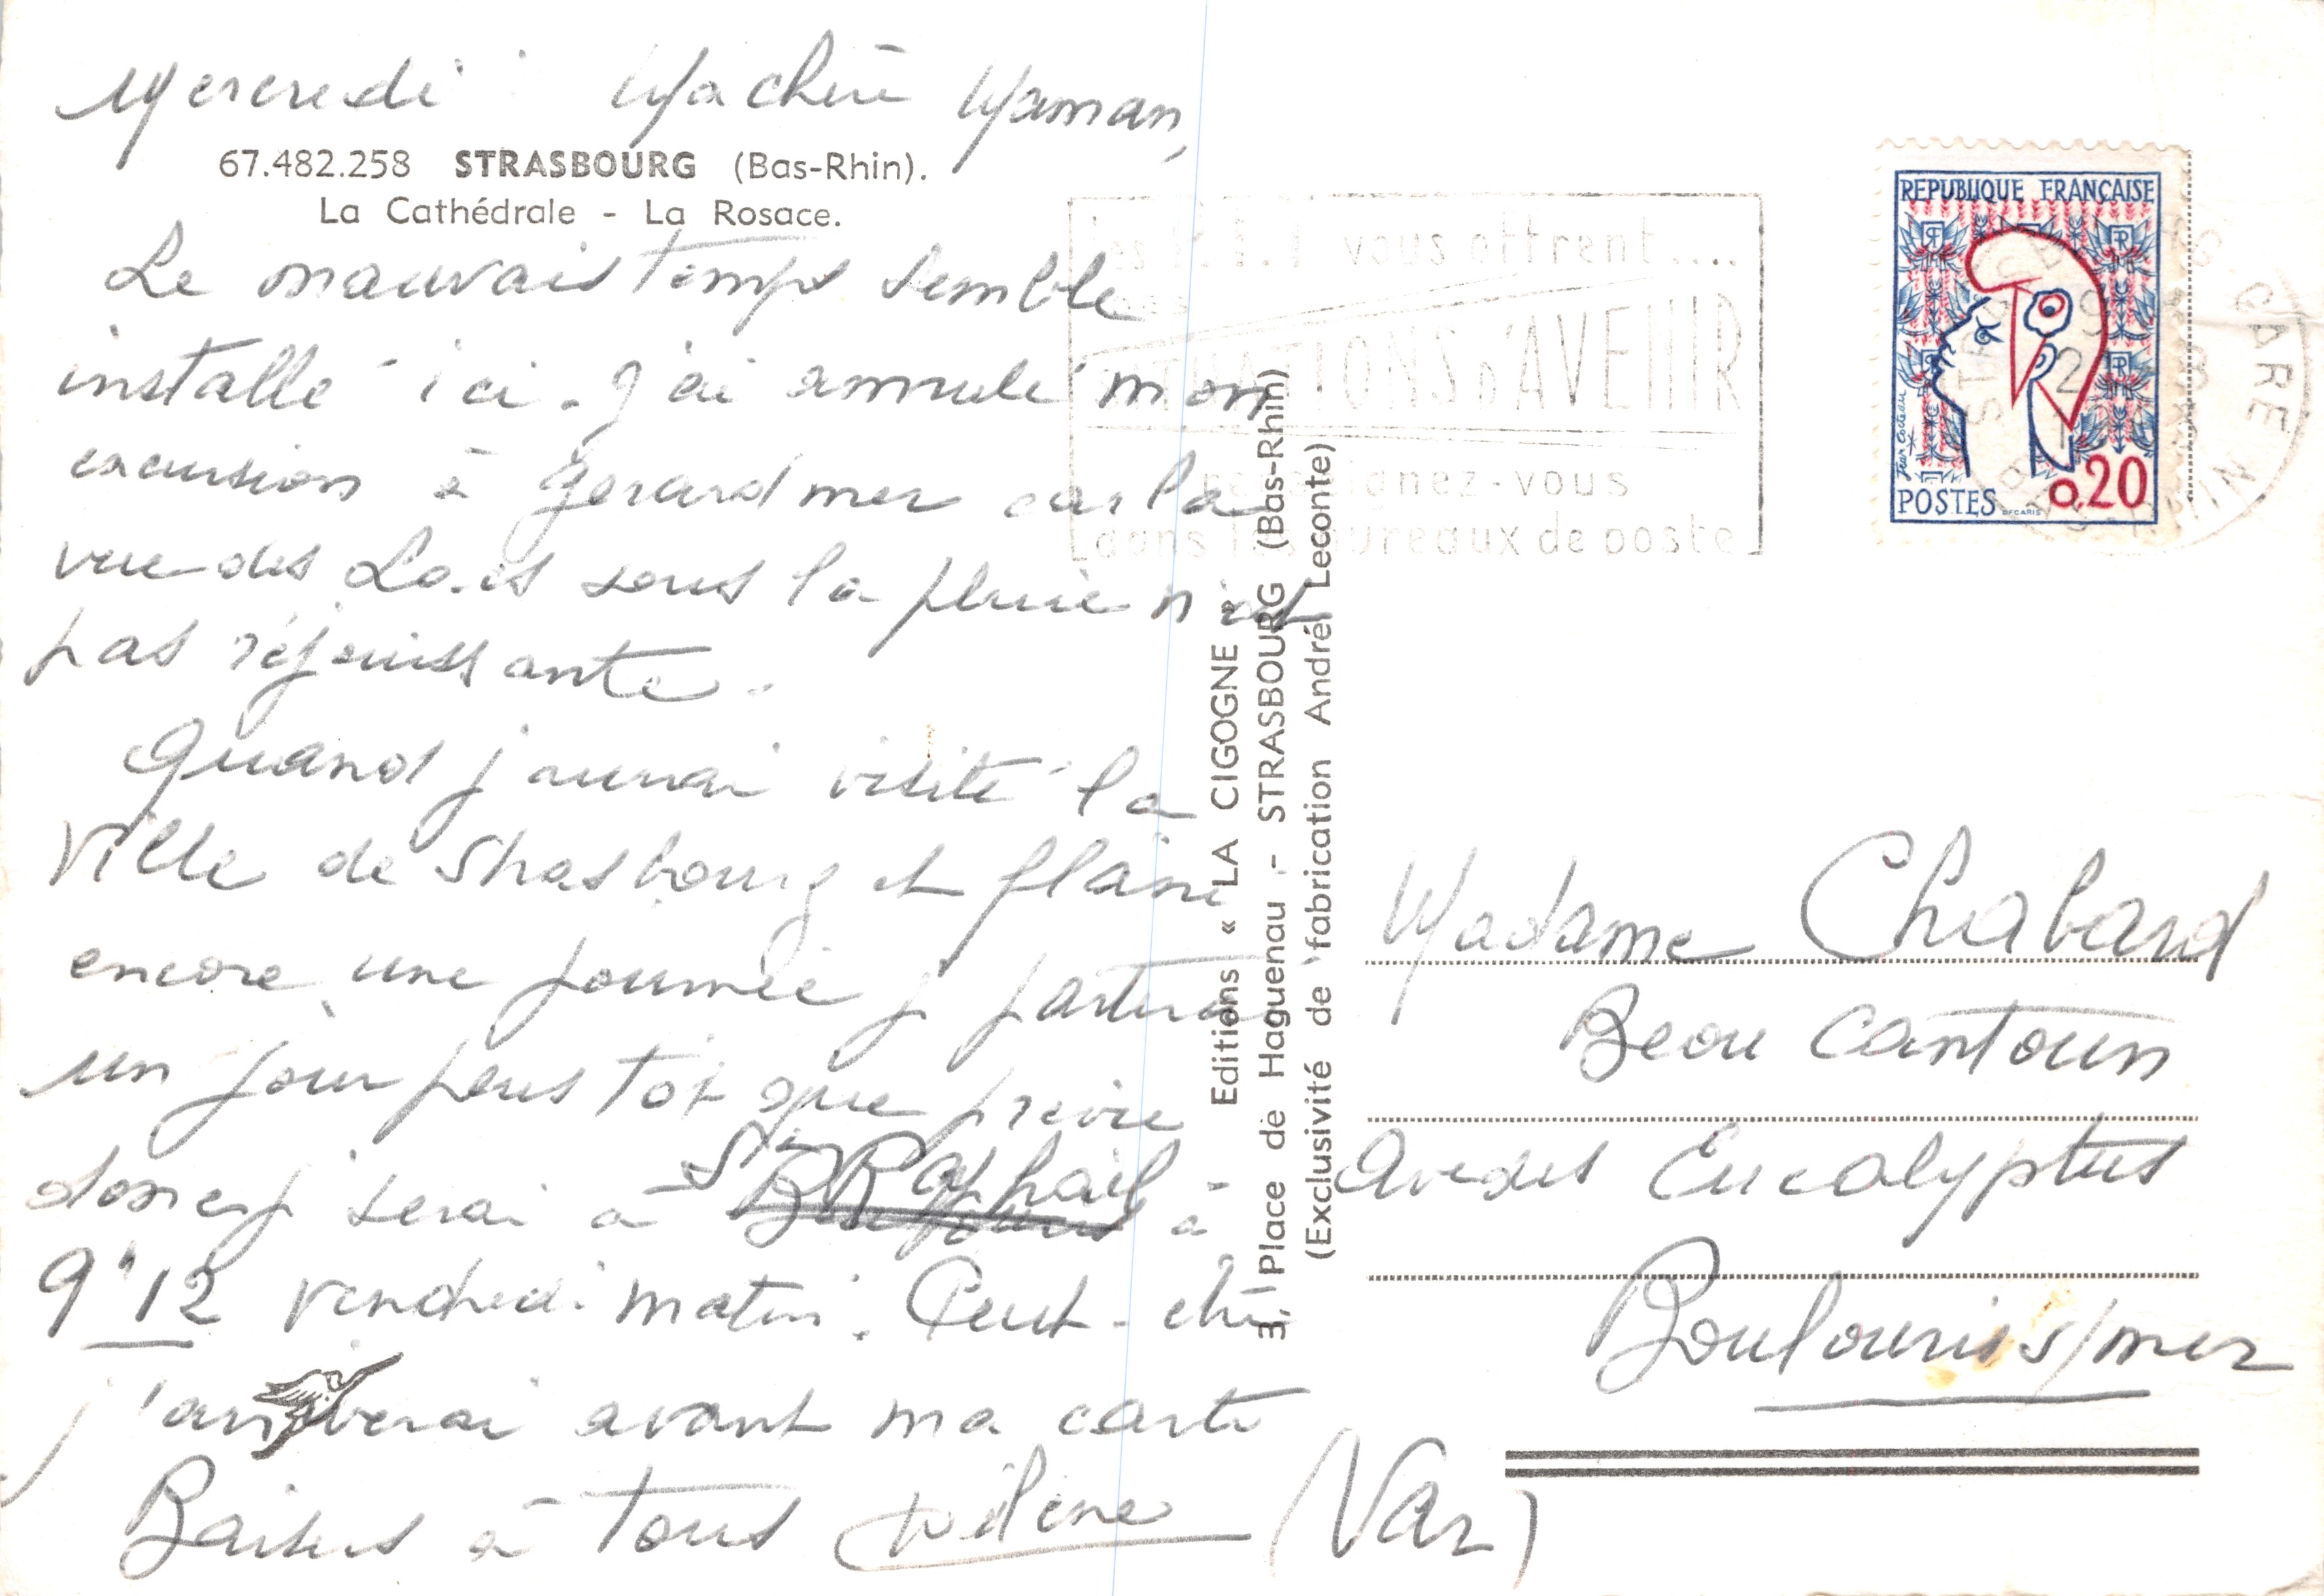 Mercredi Ma chère Maman,
67.482.258 STRASBOURG (Bas-Rhin).
La Cathédrale - La Rosace.
Le mauvais temps semble
installé ici. J'ai annulé mon
excursion à Gerardmer car la
vue des Lacs sous la pluie n'est
pas réjouissante.
Quand j'aurai visité la
Ville de Strasbourg et flâné
encore une journée j partirai
un jour plus tot que prévu
donc j serai à St Raphaël à
9h12 vendredi matin. Peut-être
j'arriverai avant ma carte
Baisers à tous
Editions « LA CIGOGNE »
3, Place de Haguenau - STRASBOURG (Bas-Rhin)
(Exclusivité de fabrication André Leconte)
vous offrent....
SITUATIONS D'AVENIR
renseignez-vous
dans les bureaux de poste
REPUBLIQUE FRANÇAISE
Jean Cocteau
POSTES 0,20
DECARIS
GARE
Madame Chabard
Beou Cantoun
Ave des Eucalyptus
Boulouris s/mer
(Var)